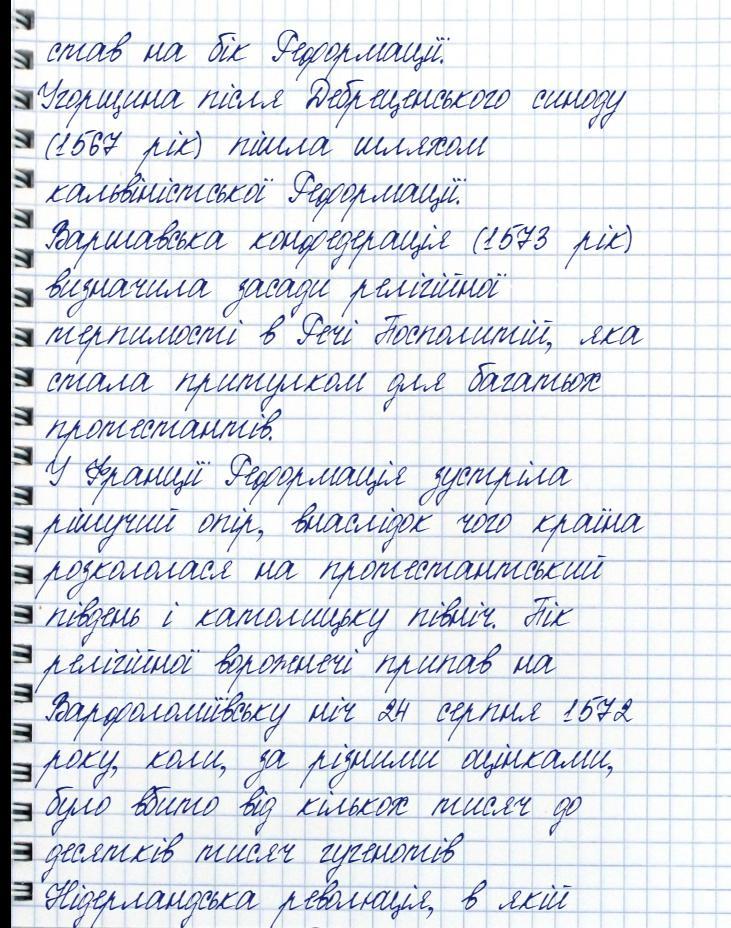 став на бік Реформації.
Угорщина після Дебреценського синоду
(1567 рік) пішла шляхом
кальвіністської Реформації.
Варшавська конфедерація (1573 рік)
визначила засади релігійної
терпимості в Речі Посполитій, яка
стала притулком для багатьох
протестантів.
У Франції Реформація зустріла
рішучий опір, внаслідок чого країна
розкололася на протестантський
південь і католицьку північ. Пік
релігійної ворожнечі припав на
Варфоломіївську ніч 24 серпня 1572
року, коли, за різними оцінками,
було вбито від кількох тисяч до
десятків тисяч гугенотів
Нідерландська революція, в якій